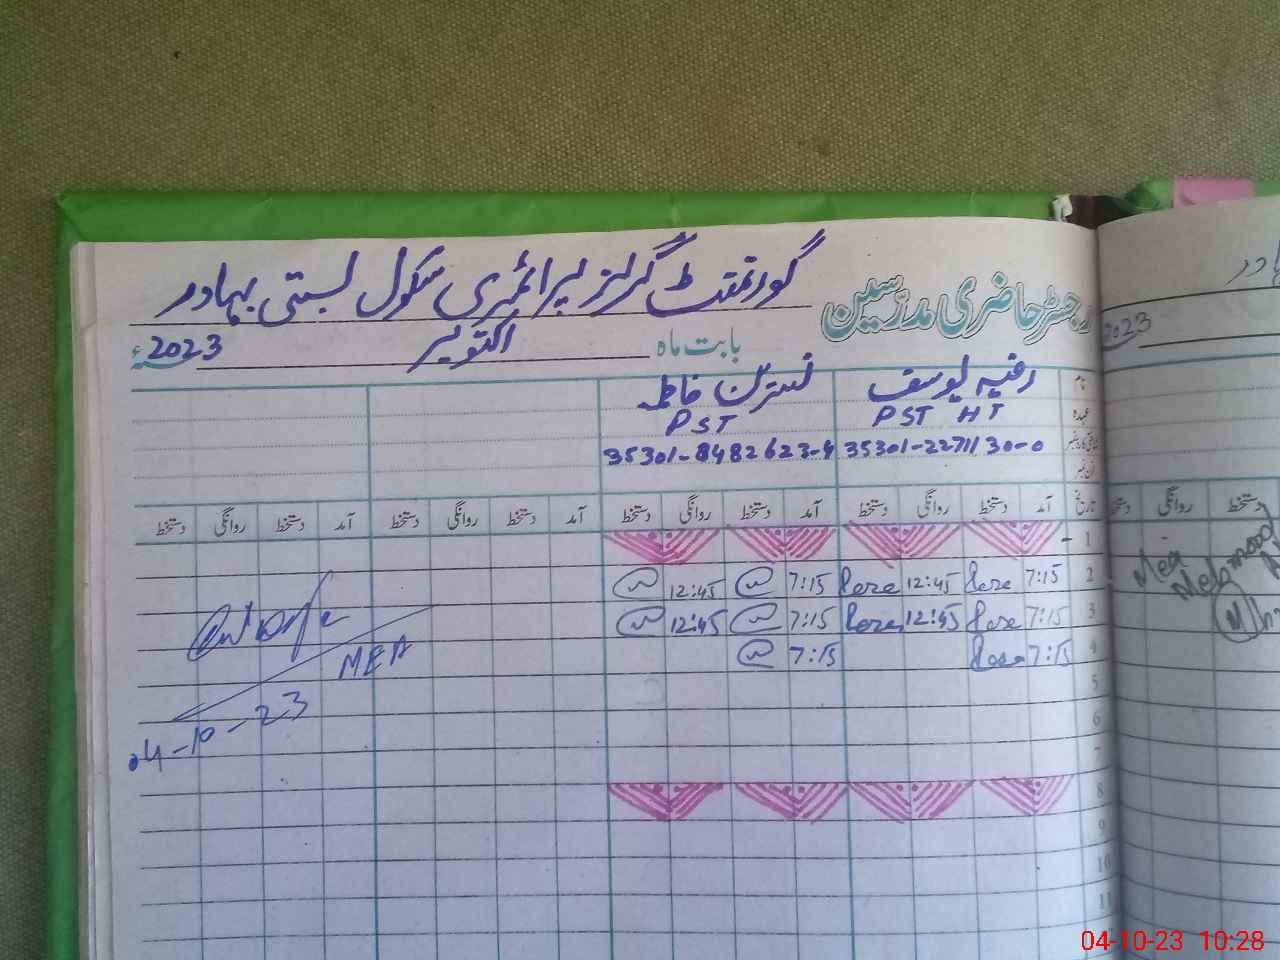 گورنمنٹ گرلز پرائمری سکول بستی بہادر
رجسٹر حاضری مدرسین
بابت ماہ اکتوبر 2023ء
نام رفیہ یوسف نسترن فاطمہ
عہدہ PST HT PST
35301-2271130-0 35301-8482623-4
تاریخ آمد دستخط روانگی دستخط آمد دستخط روانگی دستخط آمد دستخط روانگی دستخط آمد دستخط روانگی دستخط
1
2 7:15 12:45 7:15 12:45
3 7:15 12:45 7:15 12:45
4 7:15 7:15
5
6
7
8
9
10
11
MEA
04-10-23
2023
روانگی دستخط
04-10-23 10:28